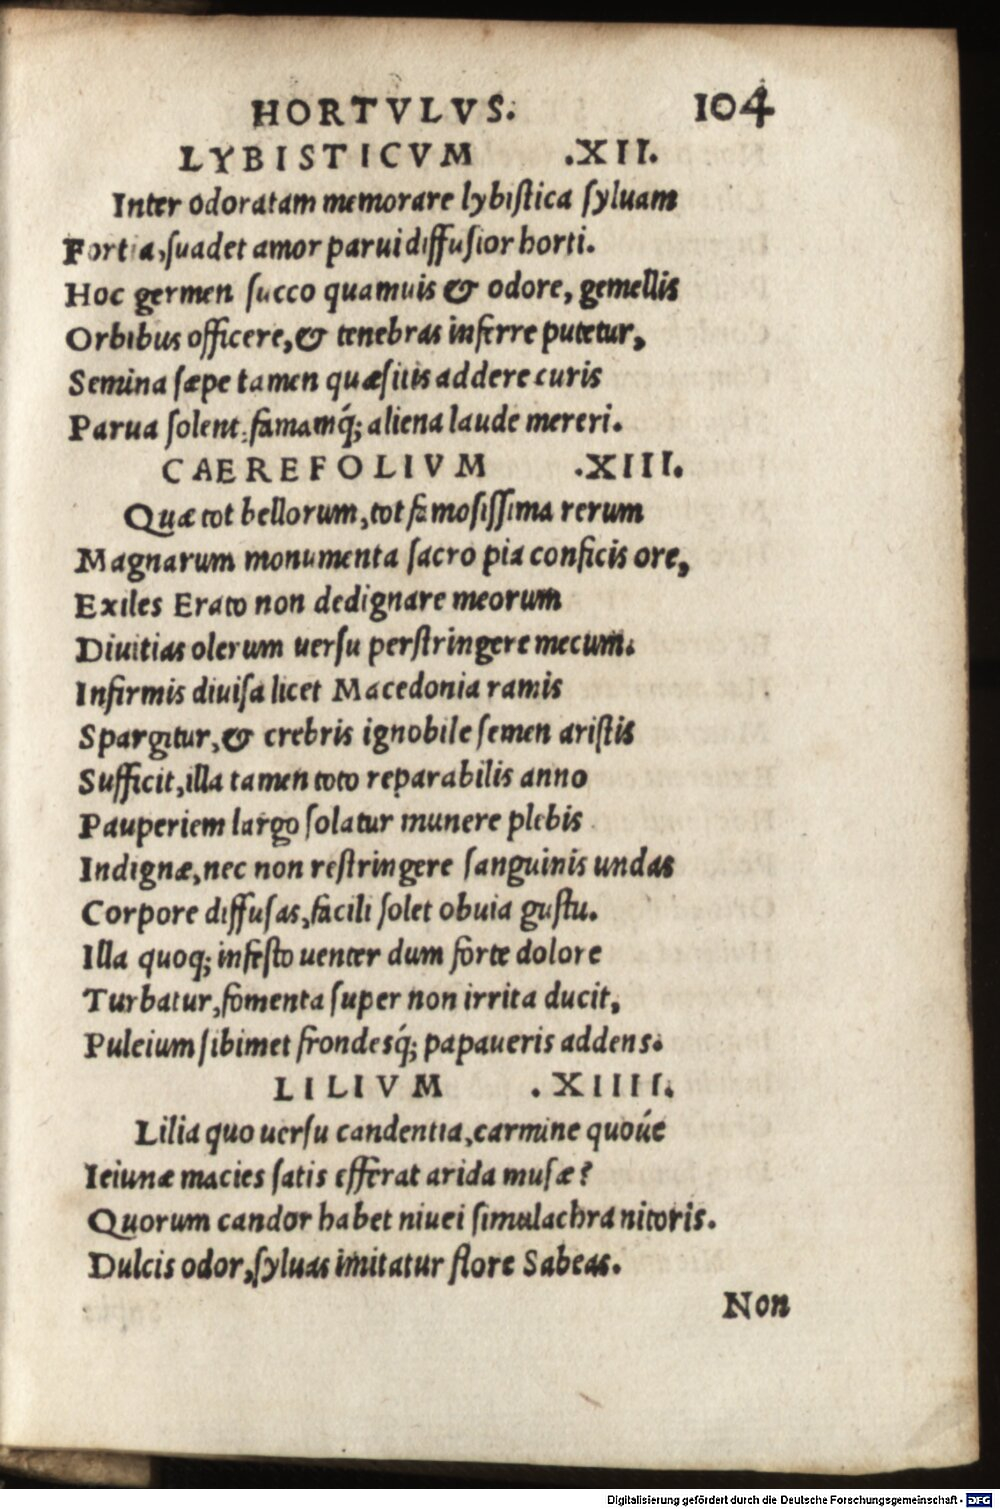 HORTVLVS. 104
LYBISTICVM .XII.
Inter odoratam memorare lybiſtica ſyluam
Fortia, ſuadet amor parui diffuſior horti.
Hoc germen ſucco quamuis & odore, gemellis
Orbibus officere, & tenebras inferre putetur,
Semina ſæpe tamen quæſitis addere curis
Parua ſolent, famamq́; aliena laude mereri.
CAEREFOLIVM .XIII.
Quæ tot bellorum, tot famoſiſſima rerum
Magnarum monumenta ſacro pia conficis ore,
Exiles Erato non dedignare meorum
Diuitias olerum uerſu perſtringere mecum.
Infirmis diuiſa licet Macedonia ramis
Spargitur, & crebris ignobile ſemen ariſtis
Sufficit, illa tamen toto reparabilis anno
Pauperiem largo ſolatur munere plebis
Indignæ, nec non reſtringere ſanguinis undas
Corpore diffuſas, facili ſolet obuia guſtu.
Illa quoq; infeſto uenter dum forte dolore
Turbatur, fomenta ſuper non irrita ducit,
Puleium ſibimet frondesq́; papaueris addens.
LILIVM .XIIII.
Lilia quo uerſu candentia, carmine quoúe
Ieiunæ macies ſatis efferat arida muſæ?
Quorum candor habet niuei ſimulachra nitoris.
Dulcis odor, ſyluas imitatur flore Sabeas.
Non
Digitalisierung gefördert durch die Deutsche Forschungsgemeinschaft - DFG